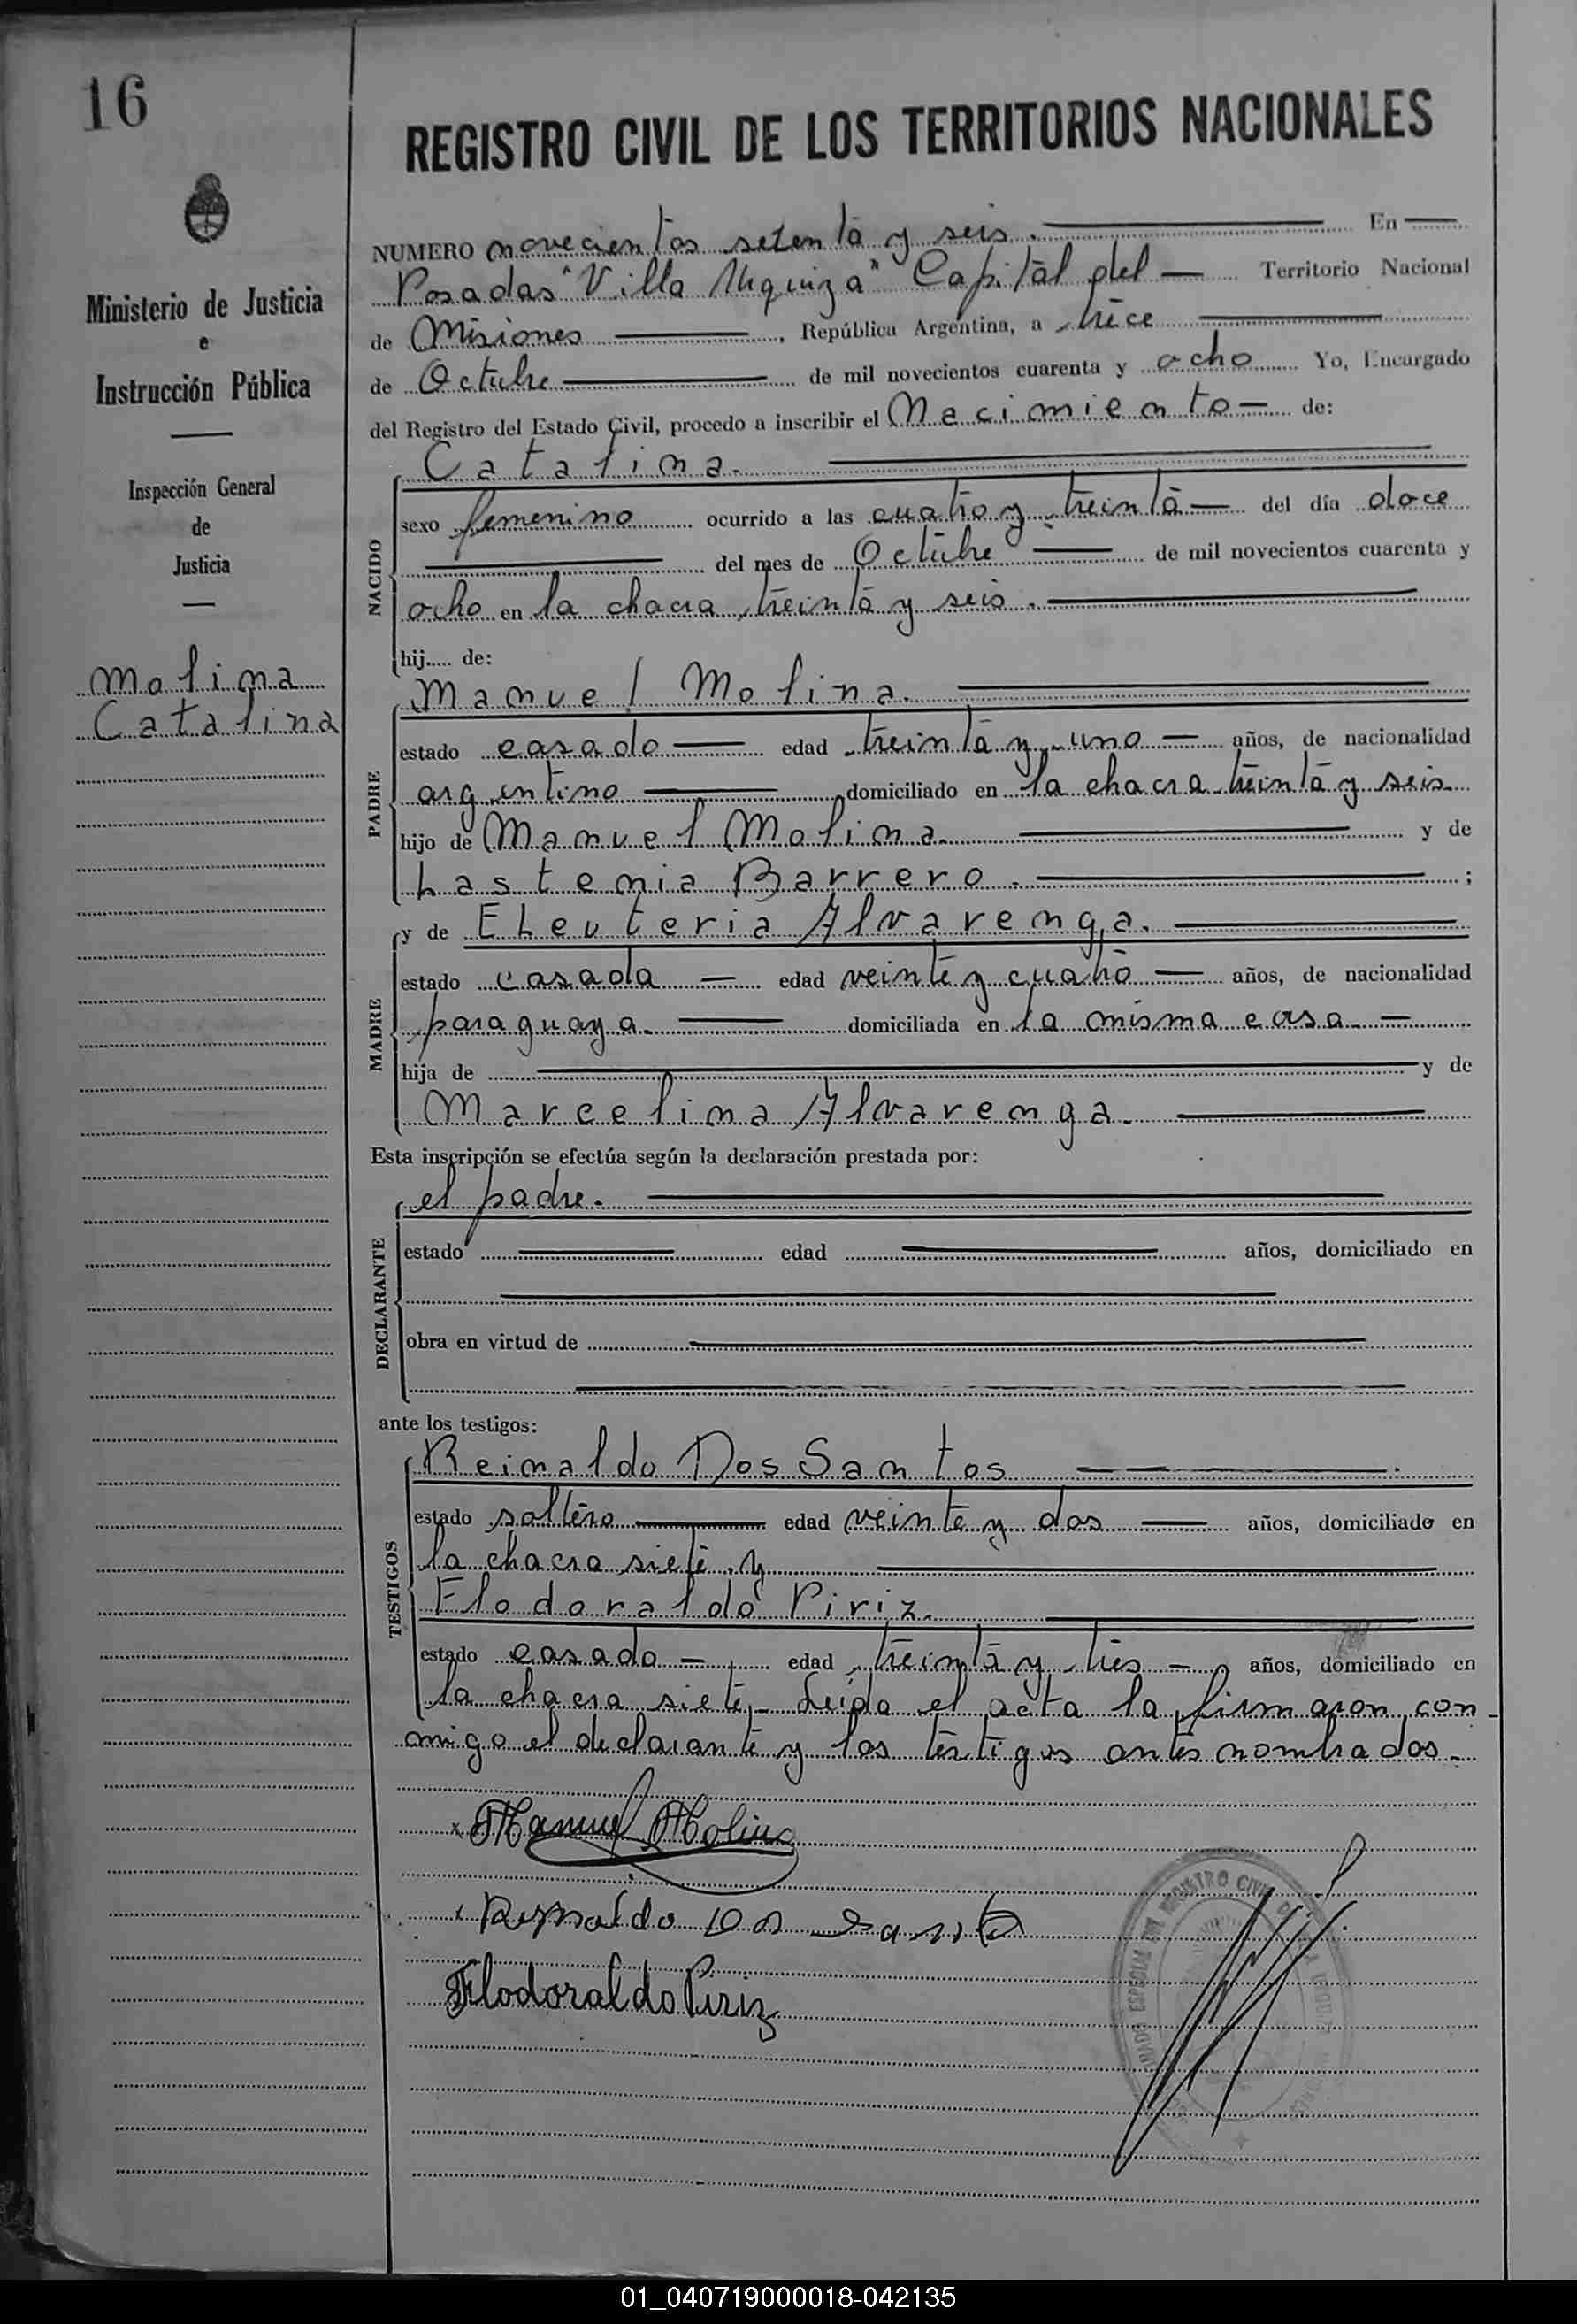 16
REGISTRO CIVIL DE LOS TERRITORIOS NACIONALES
Ministerio de Justicia
e
Instrucción Pública
Inspección General
de
Justicia
Molina
Catalina
NUMERO novecientos setenta y seis. En
Posadas "Villa Urquiza" Capital del Territorio Nacional
de Misiones, República Argentina, a trece
de Octubre de mil novecientos cuarenta y ocho Yo, Encargado
del Registro del Estado Civil, procedo a inscribir el Nacimiento de:
NACIDO
Catalina.
sexo femenino ocurrido a las cuatro y treinta del día doce
del mes de Octubre de mil novecientos cuarenta y
ocho en la chacra treinta y seis.
hij..... de:
PADRE
Manuel Molina.
estado casado edad treinta y uno años, de nacionalidad
argentino domiciliado en la chacra treinta y seis
hijo de Manuel Molina. y de
Lastenia Barrero. ;
MADRE
y de Eleuteria Alvarenga.
estado casada edad veinte y cuatro años, de nacionalidad
paraguaya. domiciliada en la misma casa
hija de y de
Marcelina Alvarenga.
Esta inscripción se efectúa según la declaración prestada por:
DECLARANTE
el padre.
estado edad años, domiciliado en
obra en virtud de
ante los testigos:
TESTIGOS
Reinaldo Dos Santos
estado soltero edad veinte y dos años, domiciliado en
la chacra siete y
Flodoraldo Piriz.
estado casado edad treinta y tres años, domiciliado en
la chacra siete,- Leida el acta la firmaron con-
migo el declarante y los testigos antes nombrados.
x Manuel Molina
x Reynaldo Dos Santo
Flodoraldo Piriz
REGISTRO CIVIL
01_040719000018-042135